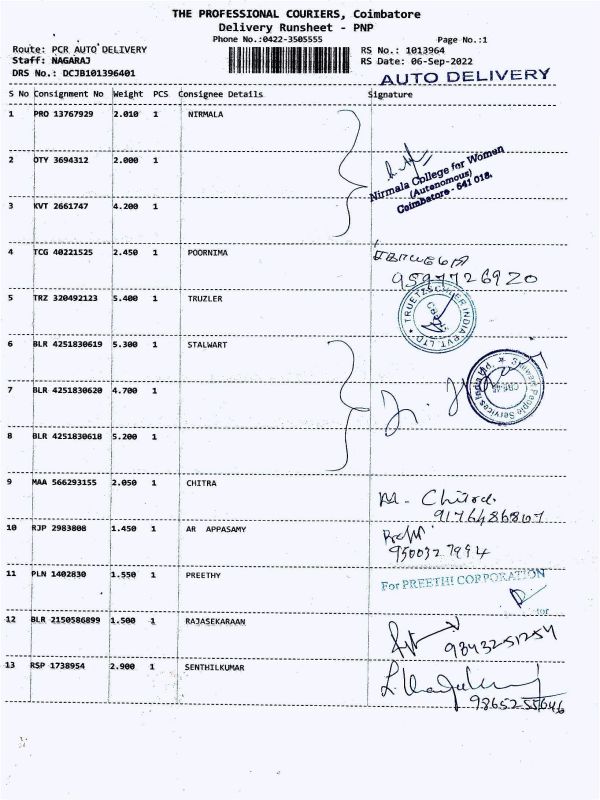 THE PROFESSIONAL COURIERS, Coimbatore
Delivery Runsheet - PNP
Phone No.:0422-3505555
Page No.:1
Route: PCR AUTO DELIVERY
RS No.: 1013964
Staff: NAGARAJ
RS Date: 06-Sep-2022
DRS No.: DCJB101396401
AUTO DELIVERY
S No Consignment No Weight PCS Consignee Details Signature
1 PRO 13767929 2.010 1 NIRMALA
Nirmala College for Women
(Autonomous)
Coimbatore - 641 018.
2 OTY 3694312 2.000 1
3 KVT 2661747 4.200 1
4 TCG 40221525 2.450 1 POORNIMA
9597726920
5 TRZ 320492123 5.400 1 TRUZLER
TRUETZSCHLER INDIA PVT. LTD.
6 BLR 4251830619 5.300 1 STALWART
Stalwart People Services India Ltd.
7 BLR 4251830620 4.700 1
8 BLR 4251830618 5.200 1
9 MAA 566293155 2.050 1 CHITRA
M. Chitra
9176486807
10 RJP 2983808 1.450 1 AR APPASAMY
9500327994
11 PLN 1402830 1.550 1 PREETHY
For PREETHI CORPORATION
12 BLR 2150586899 1.500 1 RAJASEKARAAN
9843251254
13 RSP 1738954 2.900 1 SENTHILKUMAR
9865255646